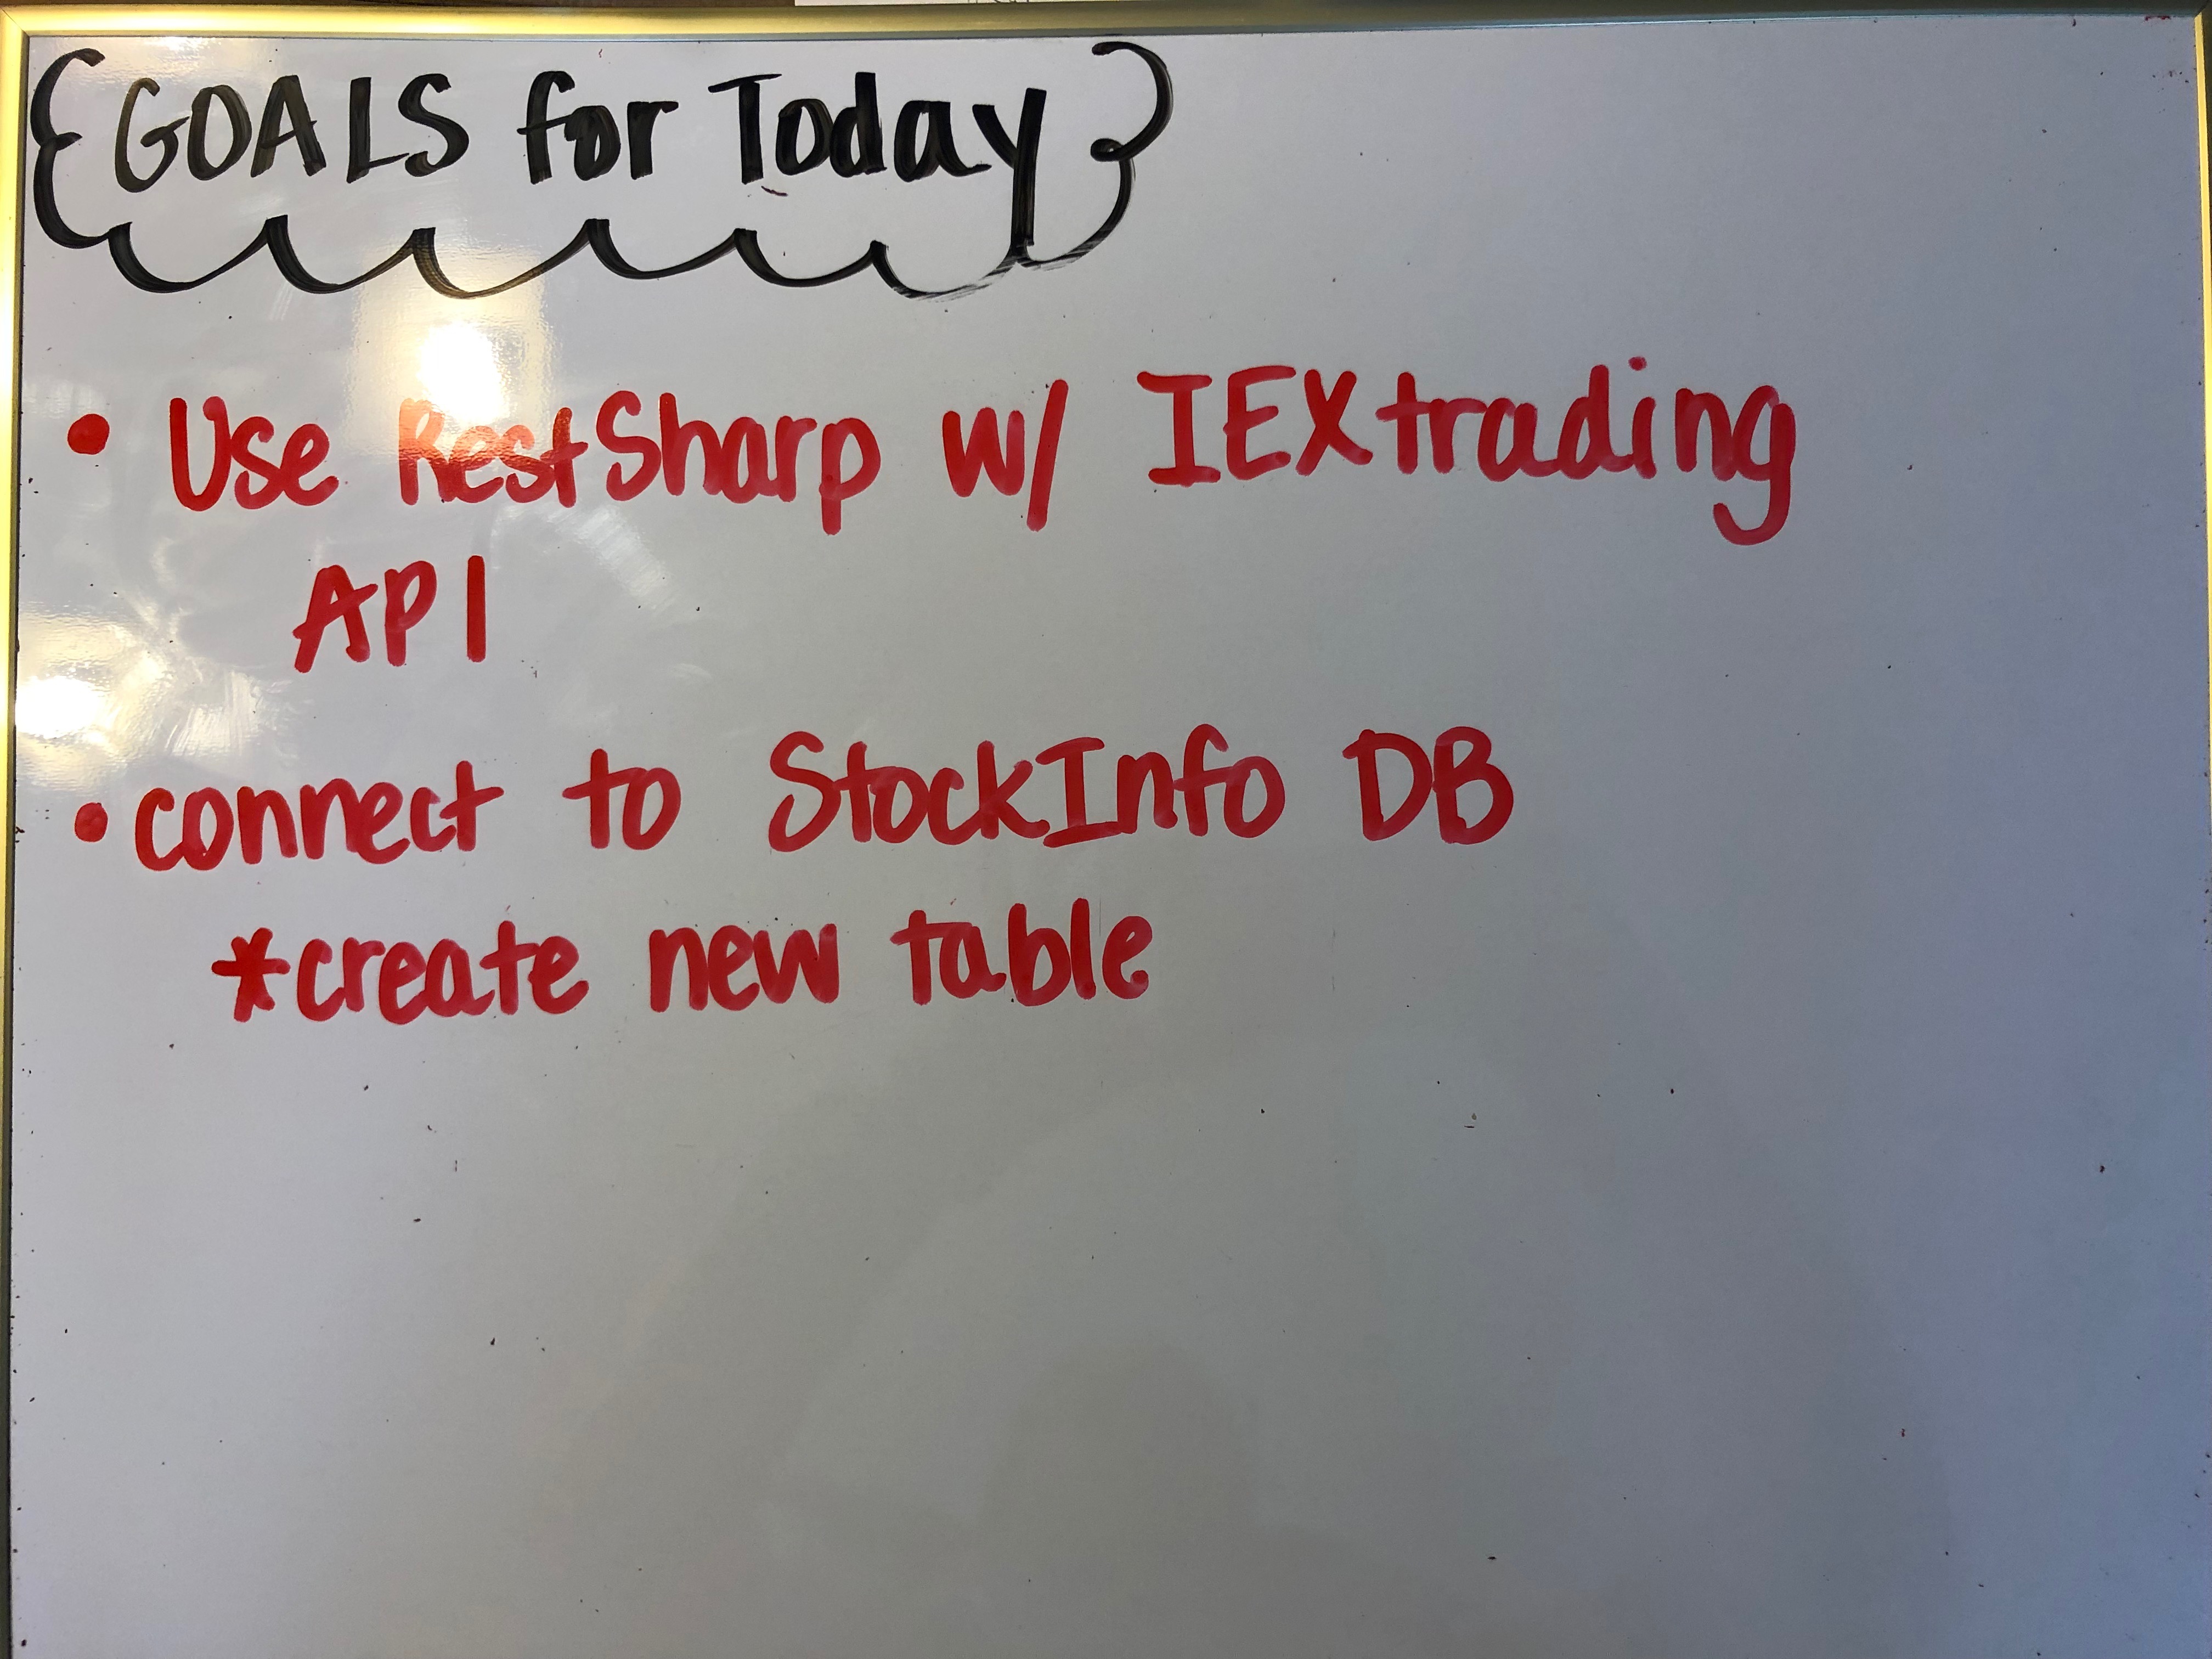 GOALS for Today
• Use RestSharp w/ IEXtrading
API
• connect to StockInfo DB
*create new table